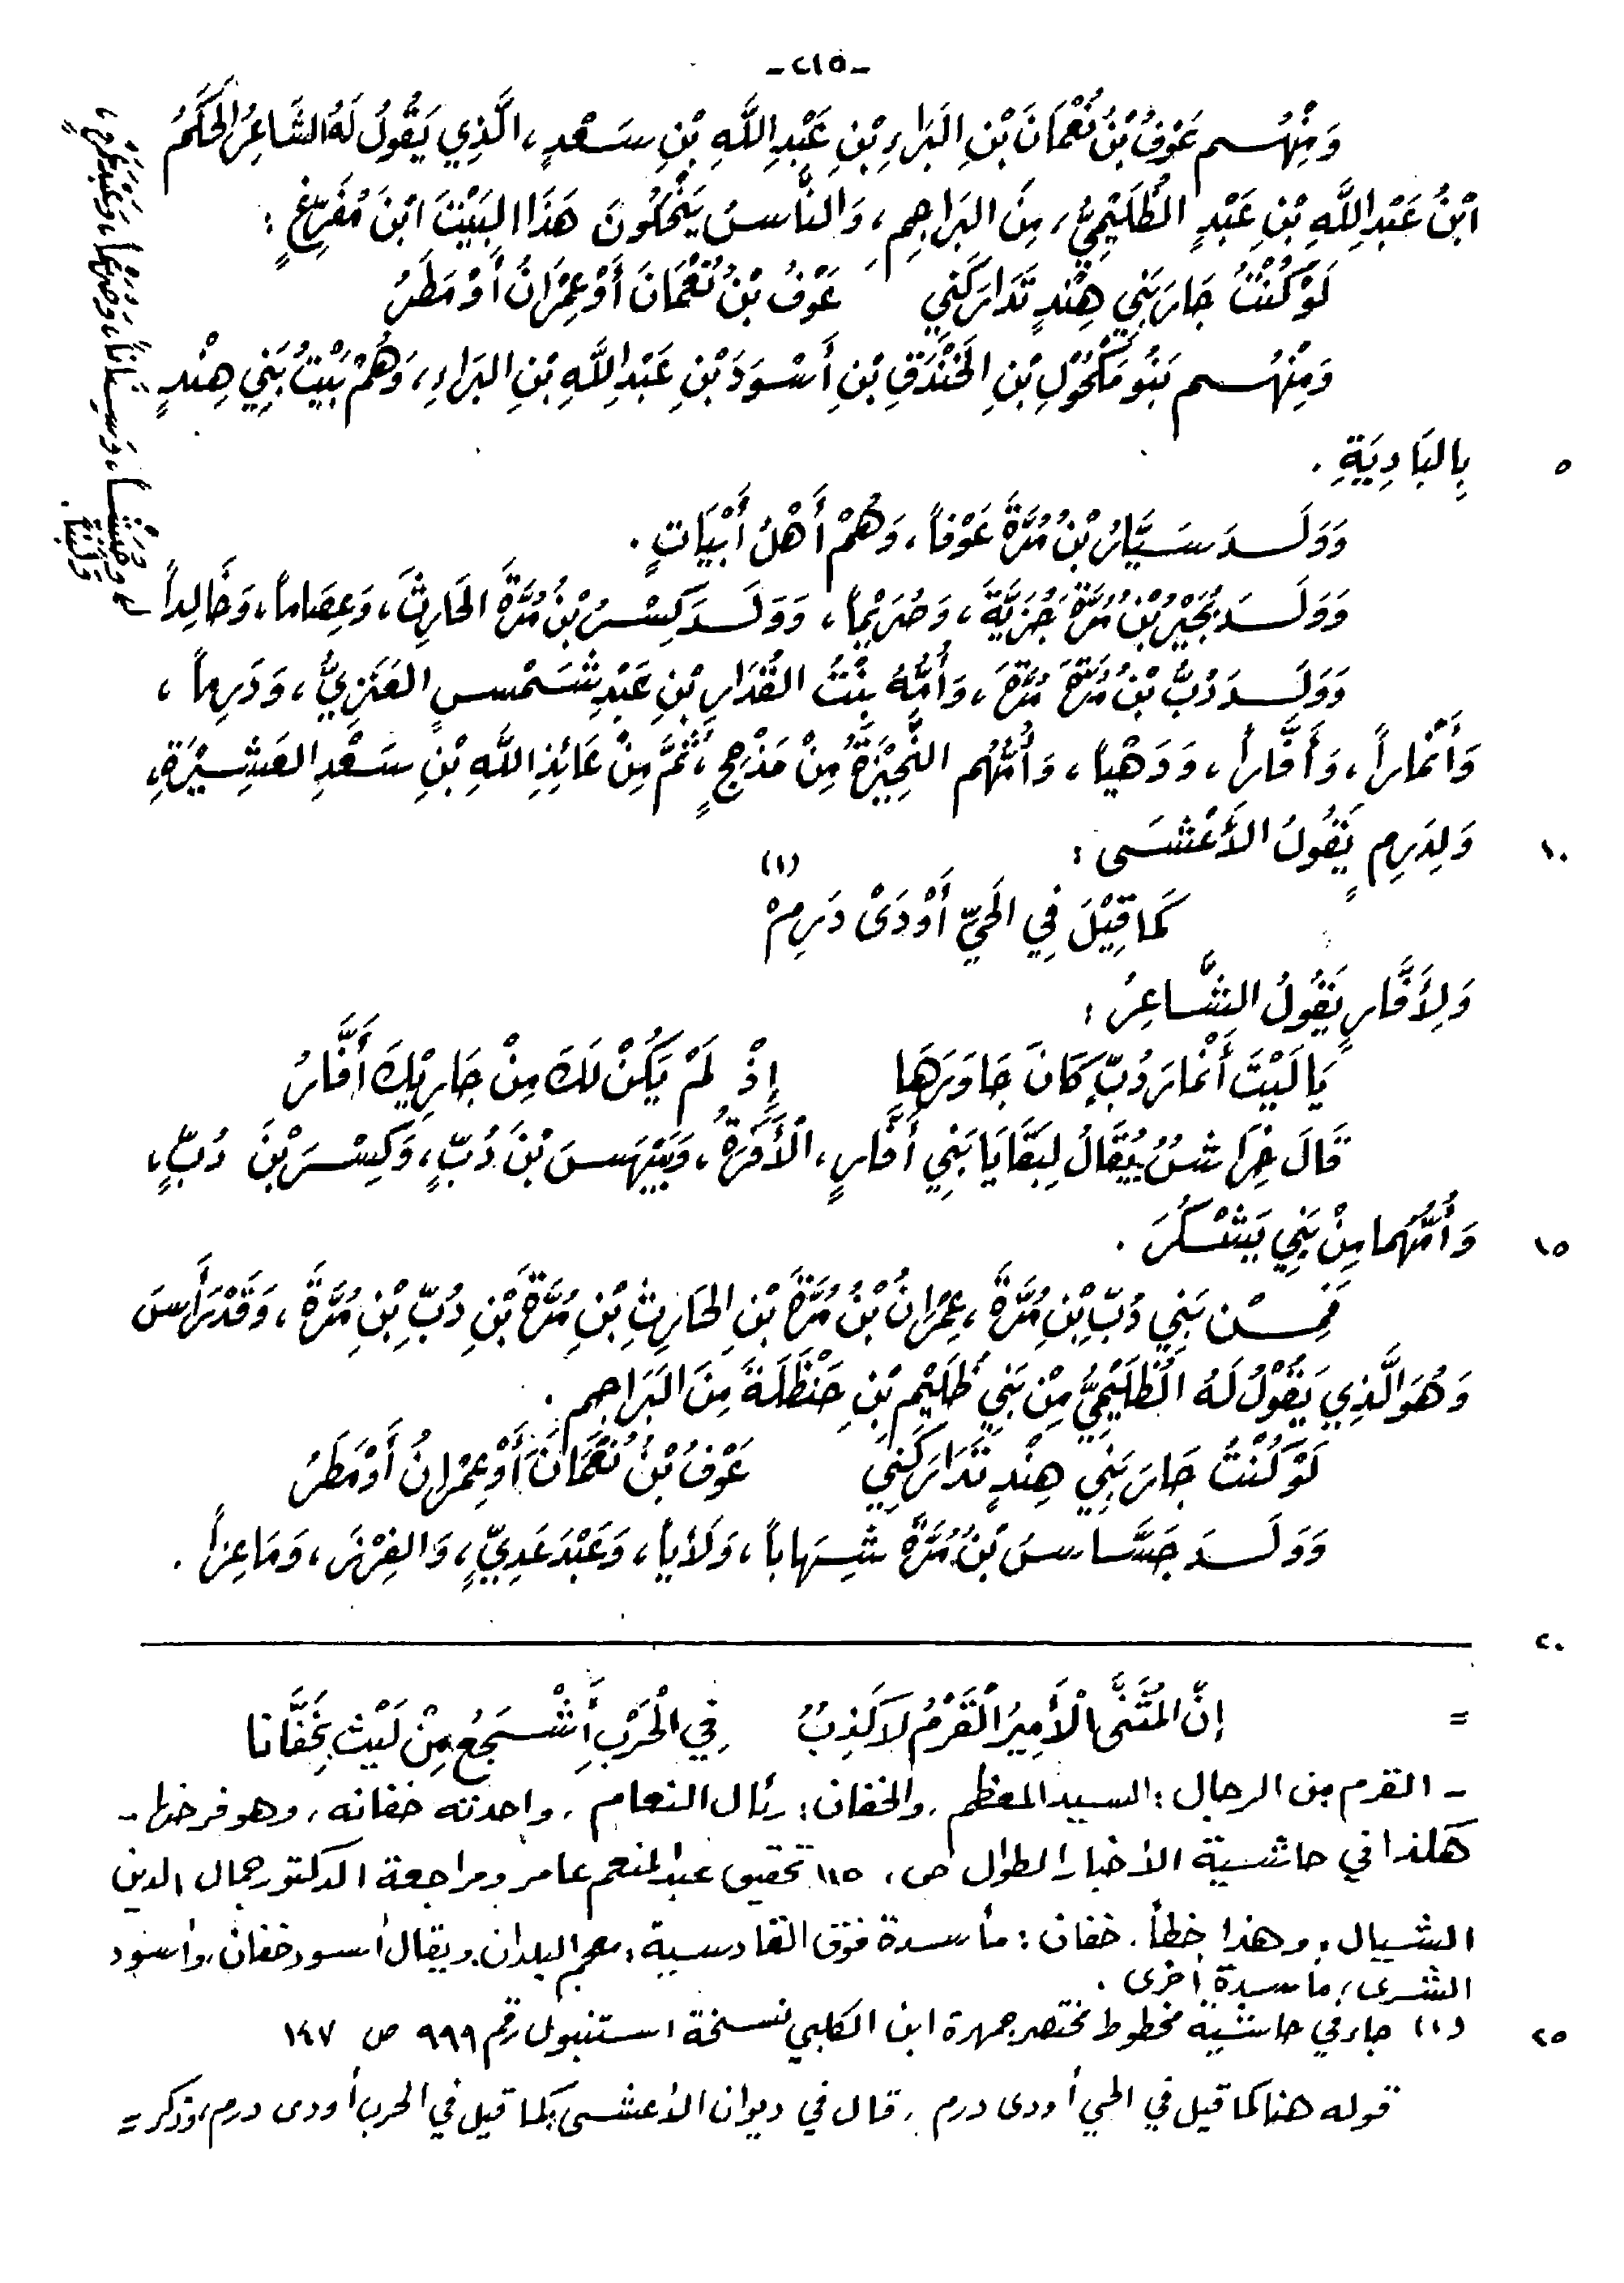 -٢١٥-
وَمِنْهُم عَوْفُ بْنُ نُعْمَانَ بْنِ البَرَاءِ بْنِ عَبْدِ اللَّهِ بْنِ سَعْدٍ، الَّذِي يَقُولُ لَهُ الشَّاعِرُ الحَكَمُ
ابْنُ عَبْدِ اللَّهِ بْنِ عَبْدٍ الظُّلَيْمِيُّ، مِنَ البَرَاجِمِ، وَالنَّاسُ يَنْحَلُونَ هَذَا البَيْتَ ابْنَ مُفَرِّغٍ :
لَوْ كُنْتُ جَارَ بَنِي هِنْدٍ تَدَارَكَنِي عَوْفُ بْنُ نُعْمَانَ أَوْ عِمْرَانُ أَوْ مَطَرُ
وَمِنْهُم بَنُو مَكْحُولِ بْنِ الخَنْدَقِ بْنِ أَسْوَدَ بْنِ عَبْدِ اللَّهِ بْنِ البَرَاءِ، وَهُمْ بَيْتُ بَنِي هِنْدٍ
٥ بِالبَادِيَةِ .
وَوَلَدَ سَيَّارُ بْنُ مُرَّةَ عَوْفاً، وَهُمْ أَهْلُ أَبْيَاتٍ .
وَوَلَدَ بُجَيْرُ بْنُ مُرَّةَ جُزَيَّةَ، وَصُرَيْماً، وَوَلَدَ كِسْرُ بْنُ مُرَّةَ الحَارِثَ، وَعِصَاماً، وَخَالِداً
وَوَلَدَ دُبُّ بْنُ مُرَّةَ مُرَّةَ، وَأُمُّهُ بِنْتُ القُدَارِ بْنِ عَبْدِ شَمْسٍ العَنَزِيُّ، وَدَرِماً،
وَأَنْمَاراً، وَأَفَّاراً، وَوَهْباً، وَأُمُّهُم النَّجِيْزَةُ مِنْ مَذْحِجٍ، ثُمَّ مِنْ عَائِذِ اللَّهِ بْنِ سَعْدِ العَشِيْرَةِ،
١٠ وَلِدَرِمٍ يَقُولُ الأَعْشَى :
كَمَا قِيْلَ فِي الحَيِّ أَوْدَىْ دَرِمْ (١)
وَلِأَفَّارٍ يَقُولُ الشَّاعِرُ :
يَا لَيْتَ أَنْمَارَ دُبٍّ كَانَ جَاوَرَهَا إِذْ لَمْ يَكُنْ لَكَ مِنْ جَارِيْكَ أَفَّارُ
قَالَ خِرَاشُ يُقَالُ لِبَقَايَا بَنِي أَفَّارٍ، الأَفَرَةُ، وَبَيْهَسَ بْنَ دُبٍّ، وَكِسْرَ بْنَ دُبٍّ،
١٥ وَأُمُّهُمَا مِنْ بَنِي يَشْكُرَ .
فَمِنْ بَنِي دُبِّ بْنِ مُرَّةَ، عِمْرَانُ بْنُ مُرَّةَ بْنِ الحَارِثِ بْنِ مُرَّةَ بْنِ دُبِّ بْنِ مُرَّةَ، وَقَدْ رَأَسَ
وَهُوَ الَّذِي يَقُوْلُ لَهُ الظُّلَيْمِيُّ مِنْ بَنِي ظُلَيْمِ بْنِ حَنْظَلَةَ مِنَ البَرَاجِمِ .
لَوْ كُنْتُ جَارَ بَنِي هِنْدٍ تَدَارَكَنِي عَوْفُ بْنُ نُعْمَانَ أَوْ عِمْرَانُ أَوْ مَطَرُ
وَوَلَدَ جَسَّاسُ بْنُ مُرَّةَ شِهَاباً، وَلَأْياً، وَعَبْدَ عَدِيٍّ، وَالفِزْرَ، وَمَاعِزاً .
وَحُبَيْشاً، وَسِنَاناً، وَصُرَيْماً، وَعَبْدَ عَمْرٍو،
٢٠
= إِنَّ المُثَنَّى الأَمِيرُ القَرْمُ لا كَذِبٌ فِي الْحَرْبِ أَشْجَعُ مِنْ لَيْثٍ بِخَفَّانَا
- القرم من الرجال : السيد المعظم، والخفان : رئال النعام، واحدته خفانه، وهو فرخها -
هكذا في حاشية الأخبار الطوال ص، ١١٥ تحقيق عبد المنعم عامر ومراجعة الدكتور جمال الدين
الشيال، وهذا خطأ. خفان : مأسدة فوق القادسية، معجم البلدان. ويقال أسود خفان، وأسود
الشرى، مأسدة أخرى .
٢٥ (١) جاء في حاشية مخطوط مختصر جمهرة ابن الكلبي نسخة استنبول رقم ٩٩٩ ص ١٤٧
قوله هنا كما قيل في الحي أودى درم، قال في ديوان الأعشى كما قيل في الحرب أودى درم، وذكر =